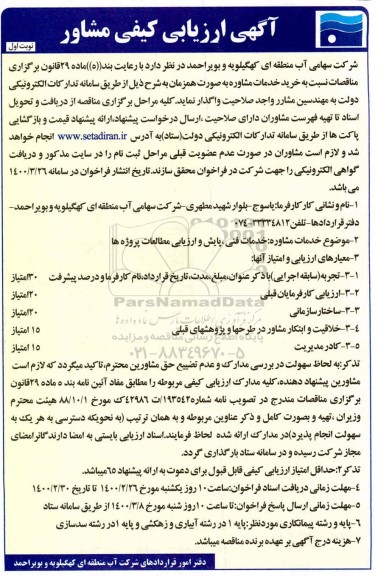 آگهی ارزیابی کیفی مشاور
نوبت اول
شرکت سهامی آب منطقه ای کهگیلویه و بویراحمد در نظر دارد با رعایت بند((ه))ماده ۲۹قانون برگزاری
مناقصات نسبت به خرید خدمات مشاوره به صورت همزمان به شرح ذیل از طریق سامانه تدارکات الکترونیکی
دولت به مهندسین مشاور واجد صلاحیت واگذار نماید.کلیه مراحل برگزاری مناقصه از دریافت و تحویل
اسناد تا تهیه فهرست مشاوران دارای صلاحیت ،ارسال درخواست پیشنهاد،ارائه پیشنهاد قیمت و بازگشایی
پاکت ها از طریق سامانه تدارکات الکترونیکی دولت(ستاد)به آدرس www.setadiran.ir انجام خواهد
شد و لازم است مشاوران در صورت عدم عضویت قبلی مراحل ثبت نام را در سایت مذکور و دریافت
گواهی الکترونیکی را جهت شرکت در فراخوان محقق سازند.تاریخ انتشار فراخوان در سامانه ۱۴۰۰/۳/۲۶
می باشد.
۱-نام و نشانی کارکارفرما:یاسوج-بلوار شهید مطهری-شرکت سهامی آب منطقه ای کهگیلویه و بویراحمد-
دفتر قراردادها-تلفن۳۳۳۳۴۸۱۲-۰۷۴
۲-موضوع خدمات مشاوره:خدمات فنی ،پایش و ارزیابی مطالعات پروژه ها
۳-معیارهای ارزیابی و امتیاز آنها:
۳-۱-تجربه(سابقه اجرایی)با ذکر عنوان،مبلغ،مدت،تاریخ قرارداد،نام کارفرما و درصد پیشرفت ۳۰امتیاز
۳-۲-ارزیابی کارفرمایان قبلی ۲۰امتیاز
۳-۳-ساختار سازمانی ۲۰امتیاز
۳-۴-خلاقیت و ابتکار مشاور در طرحها و پژوهشهای قبلی ۱۵ امتیاز
۳-۵-کادر مدیریت ۱۵ امتیاز
تذکر:به لحاظ سهولت در بررسی مدارک و عدم تضییع حق مشاورین محترم،تاکید میگردد که لازم است
مشاورین پیشنهاد دهنده،کلیه مدارک ارزیابی کیفی مربوطه را مطابق مفاد آئین نامه بند ه ماده ۲۹قانون
برگزاری مناقصات مندرج در تصویب نامه شماره۱۹۳۵۴۲/ت۴۲۹۸۶ک مورخ ۸۸/۱۰/۱ هیئت محترم
وزیران ،تهیه و بصورت کامل و ذکر عناوین مربوطه و به همان ترتیب (به نحویکه دسترسی به هر یک به
سهولت انجام پذیرد)در مدارک ارائه شده لحاظ فرمایند.اسناد ارزیابی بایستی به امضا دارندگانرامضای
مجاز شرکت رسیده و در سامانه ستاد بارگذاری گردد.
تذکر۲:حداقل امتیاز ارزیابی کیفی قابل قبول برای دعوت به ارائه پیشنهاد ۶۵میباشد.
۴-مهلت زمانی دریافت اسناد فراخوان:ساعت ۱۰ روز یکشنبه مورخ ۱۴۰۰/۲/۲۶ تا تاریخ ۱۴۰۰/۲/۳۰
۵-مهلت زمانی ارسال پاسخ فراخوان:تا ساعت ۱۰ روز شنبه مورخ ۱۴۰۰/۳/۸ از طریق سامانه ستاد
۶-پایه و رشته پیمانکاری موردنظر:پایه ۱ در رشته آبیاری و زهکشی و پایه ۱در رشته سدسازی
۷-هزینه درج آگهی بر عهده برنده مناقصه میباشد.
دفتر امور قراردادهای شرکت آب منطقه ای کهگیلویه و بویراحمد
ParsNamadData
۰۲۱-۸۸۳۴۹۶۷۰-۵